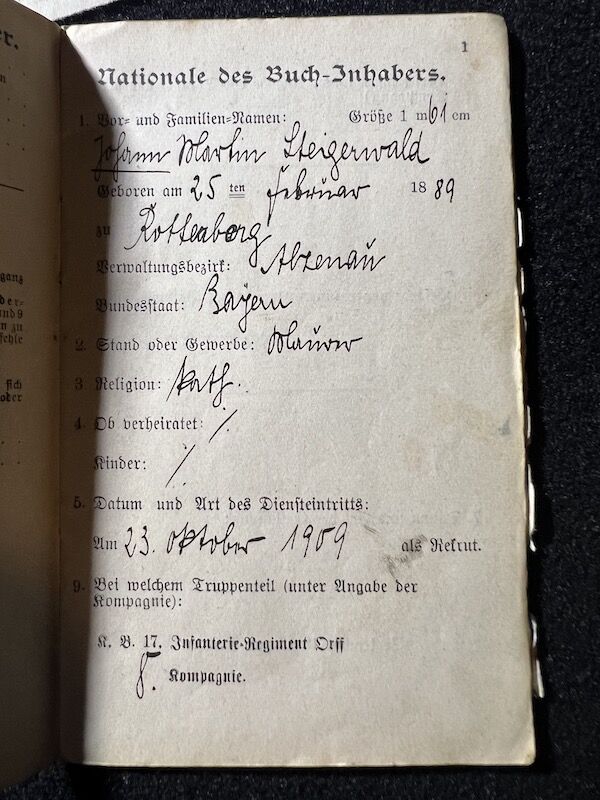 er.
1
Nationale des Buch-Inhabers.
1. Vor- und Familien-Namen: Größe 1 m 61 cm
Johann Martin Steigerwald
Geboren am 25 ten Februar 1889
zu Rottenberg
Verwaltungsbezirk: Alzenau
Bundesstaat: Bayern
2. Stand oder Gewerbe: Maurer
3. Religion: kath.
4. Ob verheiratet: ٪
Kinder: ٪
5. Datum und Art des Diensteintritts:
Am 23. Oktober 1909 als Rekrut.
9. Bei welchem Truppenteil (unter Angabe der
Kompagnie):
K. B. 17. Infanterie-Regiment Orff
8. Kompagnie.
ganz
der-
und 9
n zu
fehle
sich
oder